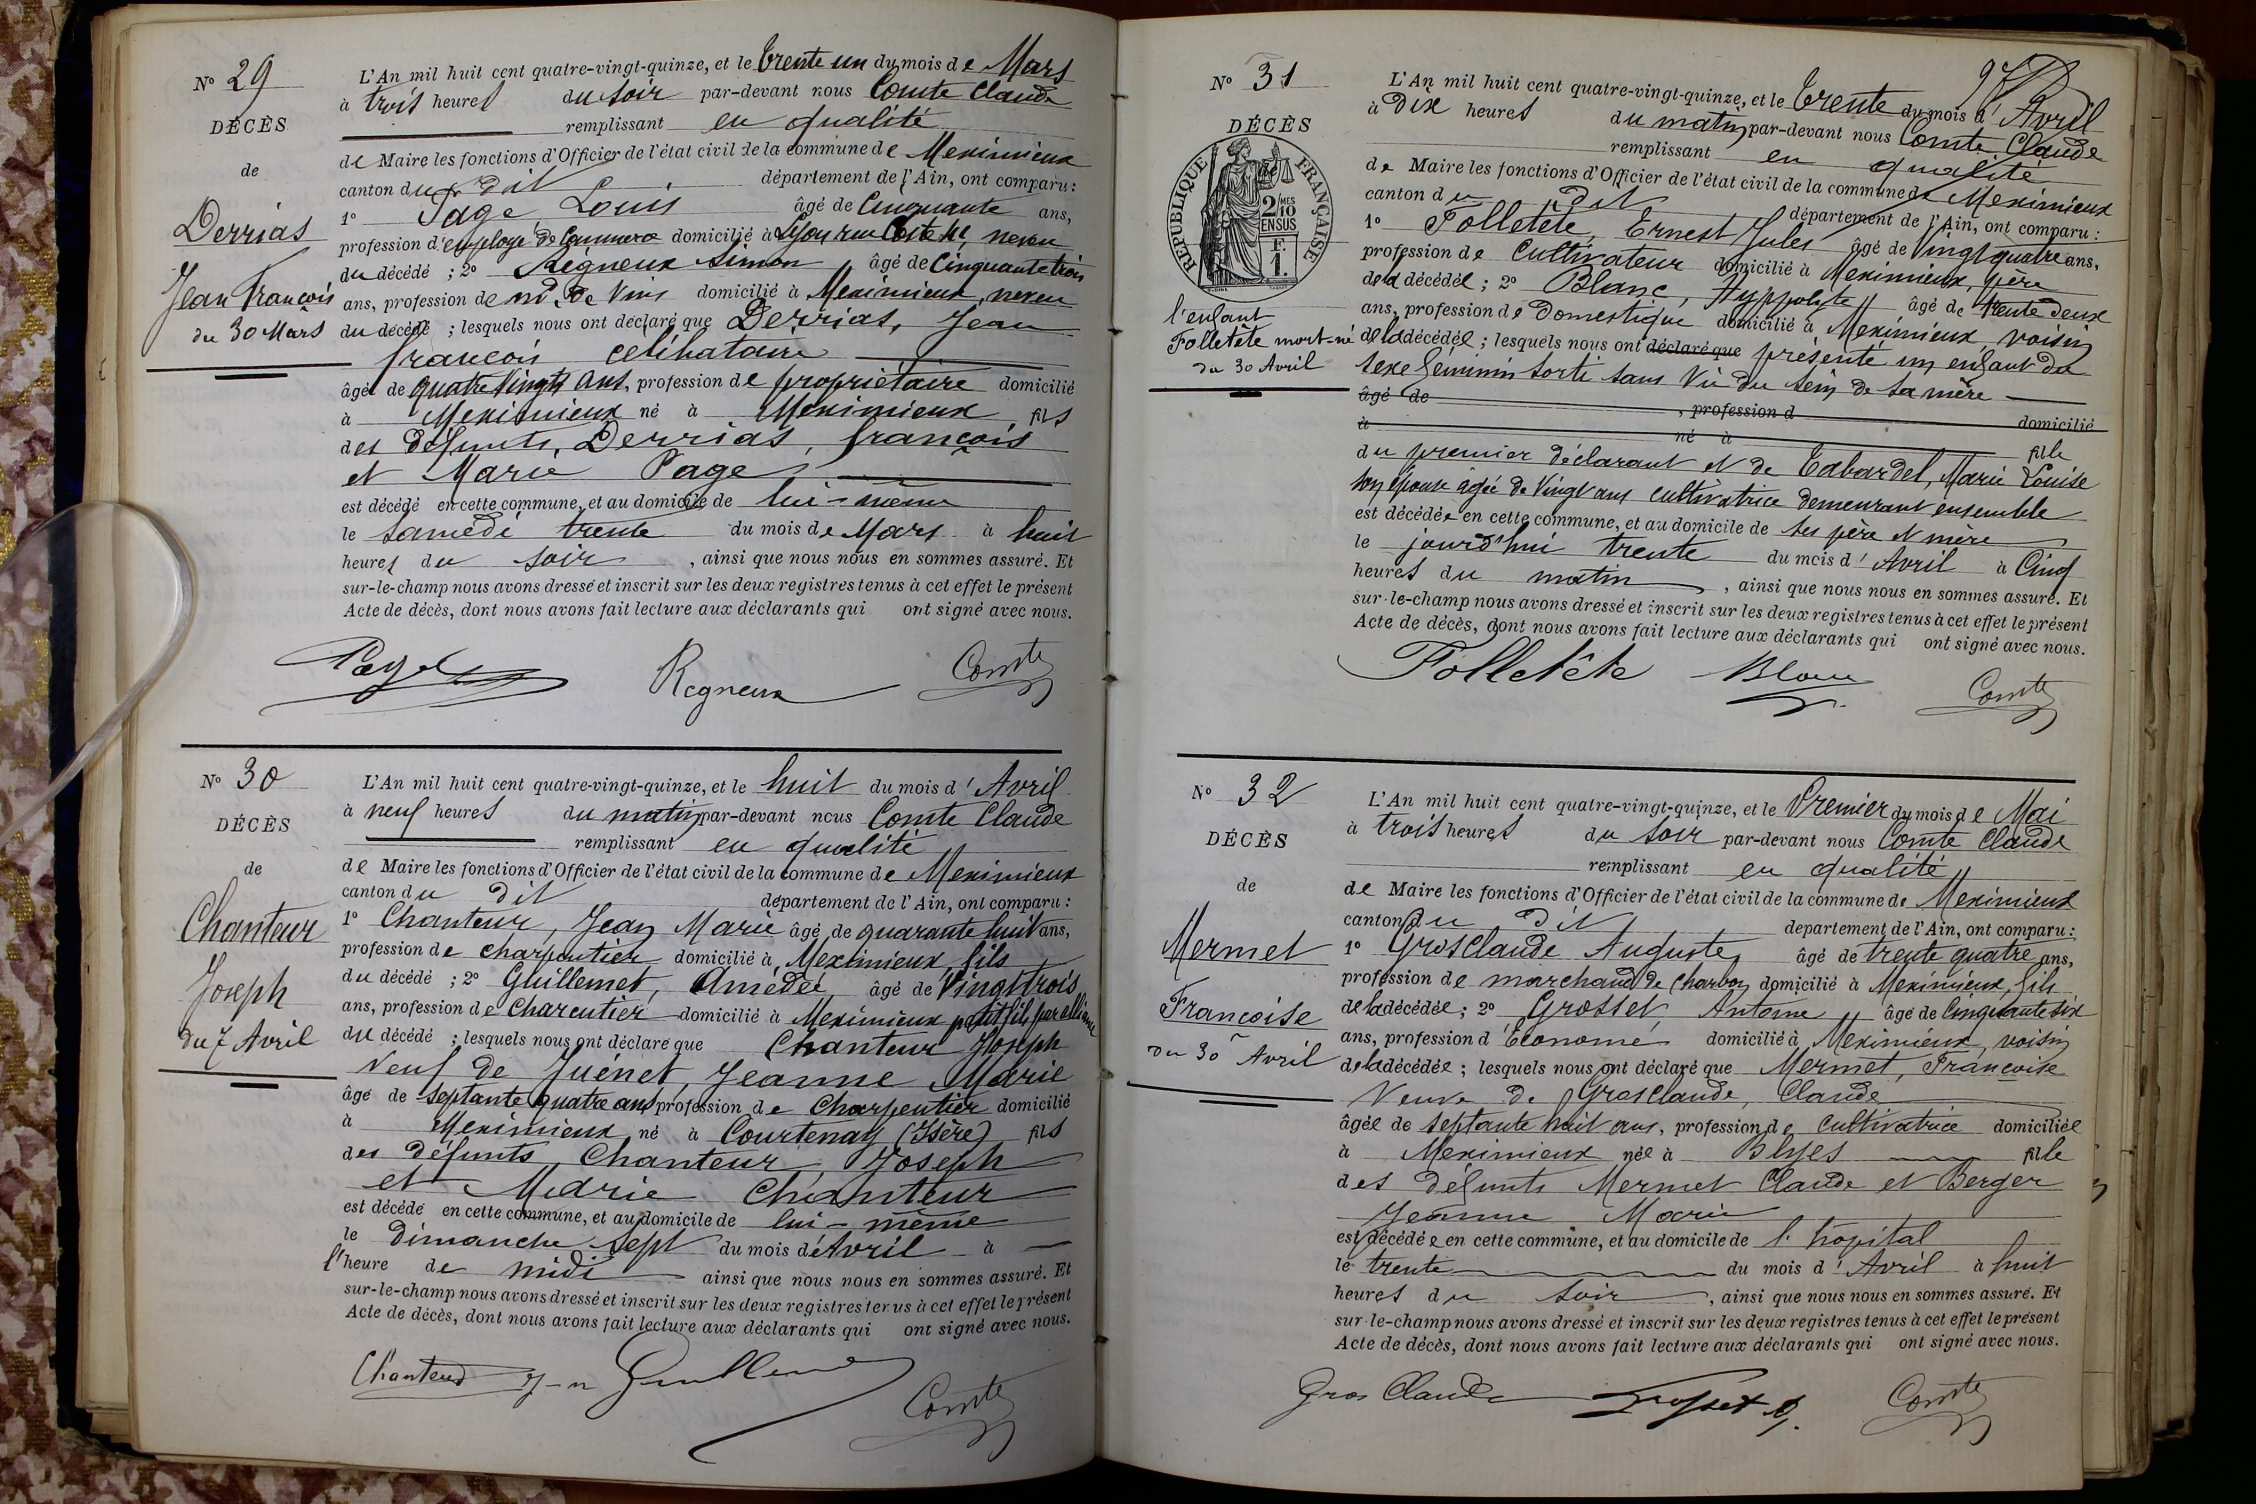 N° 29
DÉCÈS
de
Derrias
Jean François
du 30 Mars
L'An mil huit cent quatre-vingt-quinze, et le trente un du mois de Mars
à trois heures du soir par-devant nous Comte Claude
remplissant en qualité
de Maire les fonctions d'Officier de l'état civil de la commune de Meximieux
canton du dit département de l'Ain, ont comparu :
1° Page, Louis âgé de Cinquante ans,
profession d'employé de Commerce domicilié à Lyon rue neveu
du décédé ; 2° Régneux Simon âgé de Cinquante trois
ans, profession de md de Vins domicilié à Meximieux, neveu
du décédé ; lesquels nous ont déclaré que Derrias, Jean
françois célibataire
âgé de quatre Vingts ans, profession de propriétaire domicilié
à Meximieux né à Meximieux fils
des défunts, Derrias, françois
et Marie Page
est décédé en cette commune, et au domicile de lui-même
le Samedi trente du mois de Mars à huit
heures du soir, ainsi que nous nous en sommes assuré. Et
sur-le-champ nous avons dressé et inscrit sur les deux registres tenus à cet effet le présent
Acte de décès, dont nous avons fait lecture aux déclarants qui ont signé avec nous.
Page Regneux Comte
N° 30
DÉCÈS
de
Chanteur
Joseph
du 7 Avril
L'An mil huit cent quatre-vingt-quinze, et le huit du mois d'Avril
à neuf heures du matin par-devant nous Comte Claude
remplissant en qualité
de Maire les fonctions d'Officier de l'état civil de la commune de Meximieux
canton du dit département de l'Ain, ont comparu :
1° Chanteur, Jean Marie âgé de quarante huit ans,
profession de charpentier domicilié à Meximieux, fils
du décédé ; 2° Guillemet, Amédée âgé de Vingt trois
ans, profession de Charcutier domicilié à Meximieux petit fils par alliance
du décédé ; lesquels nous ont déclaré que Chanteur Joseph
Veuf de Juénet, Jeanne Marie
âgé de septante quatre ans, profession de Charpentier domicilié
à Meximieux né à Courtenay (Isère) fils
des défunts Chanteur, Joseph
et Marie Chanteur
est décédé en cette commune, et au domicile de lui-même
le Dimanche Sept du mois d'Avril à
l'heure de midi ainsi que nous nous en sommes assuré. Et
sur-le-champ nous avons dressé et inscrit sur les deux registres tenus à cet effet le présent
Acte de décès, dont nous avons fait lecture aux déclarants qui ont signé avec nous.
Chanteur Comte
97
N° 31
DÉCÈS
de
RÉPUBLIQUE FRANÇAISE
2/10 MES
EN SUS
F.
1.
l'enfant
Folletête mort-né
du 30 Avril
L'An mil huit cent quatre-vingt-quinze, et le trente du mois d'Avril
à Dix heures du matin par-devant nous Comte Claude
remplissant en qualité
de Maire les fonctions d'Officier de l'état civil de la commune de Meximieux
canton du dit département de l'Ain, ont comparu :
1° Folletête, Ernest Jules âgé de Vingt quatre ans,
profession de Cultivateur domicilié à Meximieux, père
de la décédée ; 2° Blanc, Hyppolyte âgé de trente deux
ans, profession de Domestique domicilié à Meximieux, voisin
de la décédée ; lesquels nous ont déclaré que présenté un enfant du
sexe féminin sorti sans Vie du sein de sa mère
âgé de , profession d domicilié
à né à fille
du premier déclarant et de Tabardel, Marie Louise
son épouse âgée de Vingt ans cultivatrice demeurant ensemble
est décédée en cette commune, et au domicile de ses père et mère
le jourd'hui trente du mois d'Avril à Cinq
heures du matin, ainsi que nous nous en sommes assuré. Et
sur-le-champ nous avons dressé et inscrit sur les deux registres tenus à cet effet le présent
Acte de décès, dont nous avons fait lecture aux déclarants qui ont signé avec nous.
Folletête Blanc Comte
N° 32
DÉCÈS
de
Mermet
Françoise
du 30 Avril
L'An mil huit cent quatre-vingt-quinze, et le Premier du mois de Mai
à trois heures du soir par-devant nous Comte Claude
remplissant en qualité
de Maire les fonctions d'Officier de l'état civil de la commune de Meximieux
canton du dit département de l'Ain, ont comparu :
1° Grosclaude Auguste âgé de trente quatre ans,
profession de marchand de charbon domicilié à Meximieux, fils
de la décédée ; 2° Grosset, Antoine âgé de Cinquante six
ans, profession d'Econome domicilié à Meximieux, voisin
de la décédée ; lesquels nous ont déclaré que Mermet, Françoise
Veuve de Grosclaude, Claude
âgée de septante huit ans, profession de cultivatrice domiciliée
à Meximieux née à Blyes fille
des défunts Mermet Claude et Berger
Jeanne Marie
est décédée en cette commune, et au domicile de l'hôpital
le trente du mois d'Avril à huit
heures du soir, ainsi que nous nous en sommes assuré. Et
sur-le-champ nous avons dressé et inscrit sur les deux registres tenus à cet effet le présent
Acte de décès, dont nous avons fait lecture aux déclarants qui ont signé avec nous.
Gros Claude Grosset A. Comte